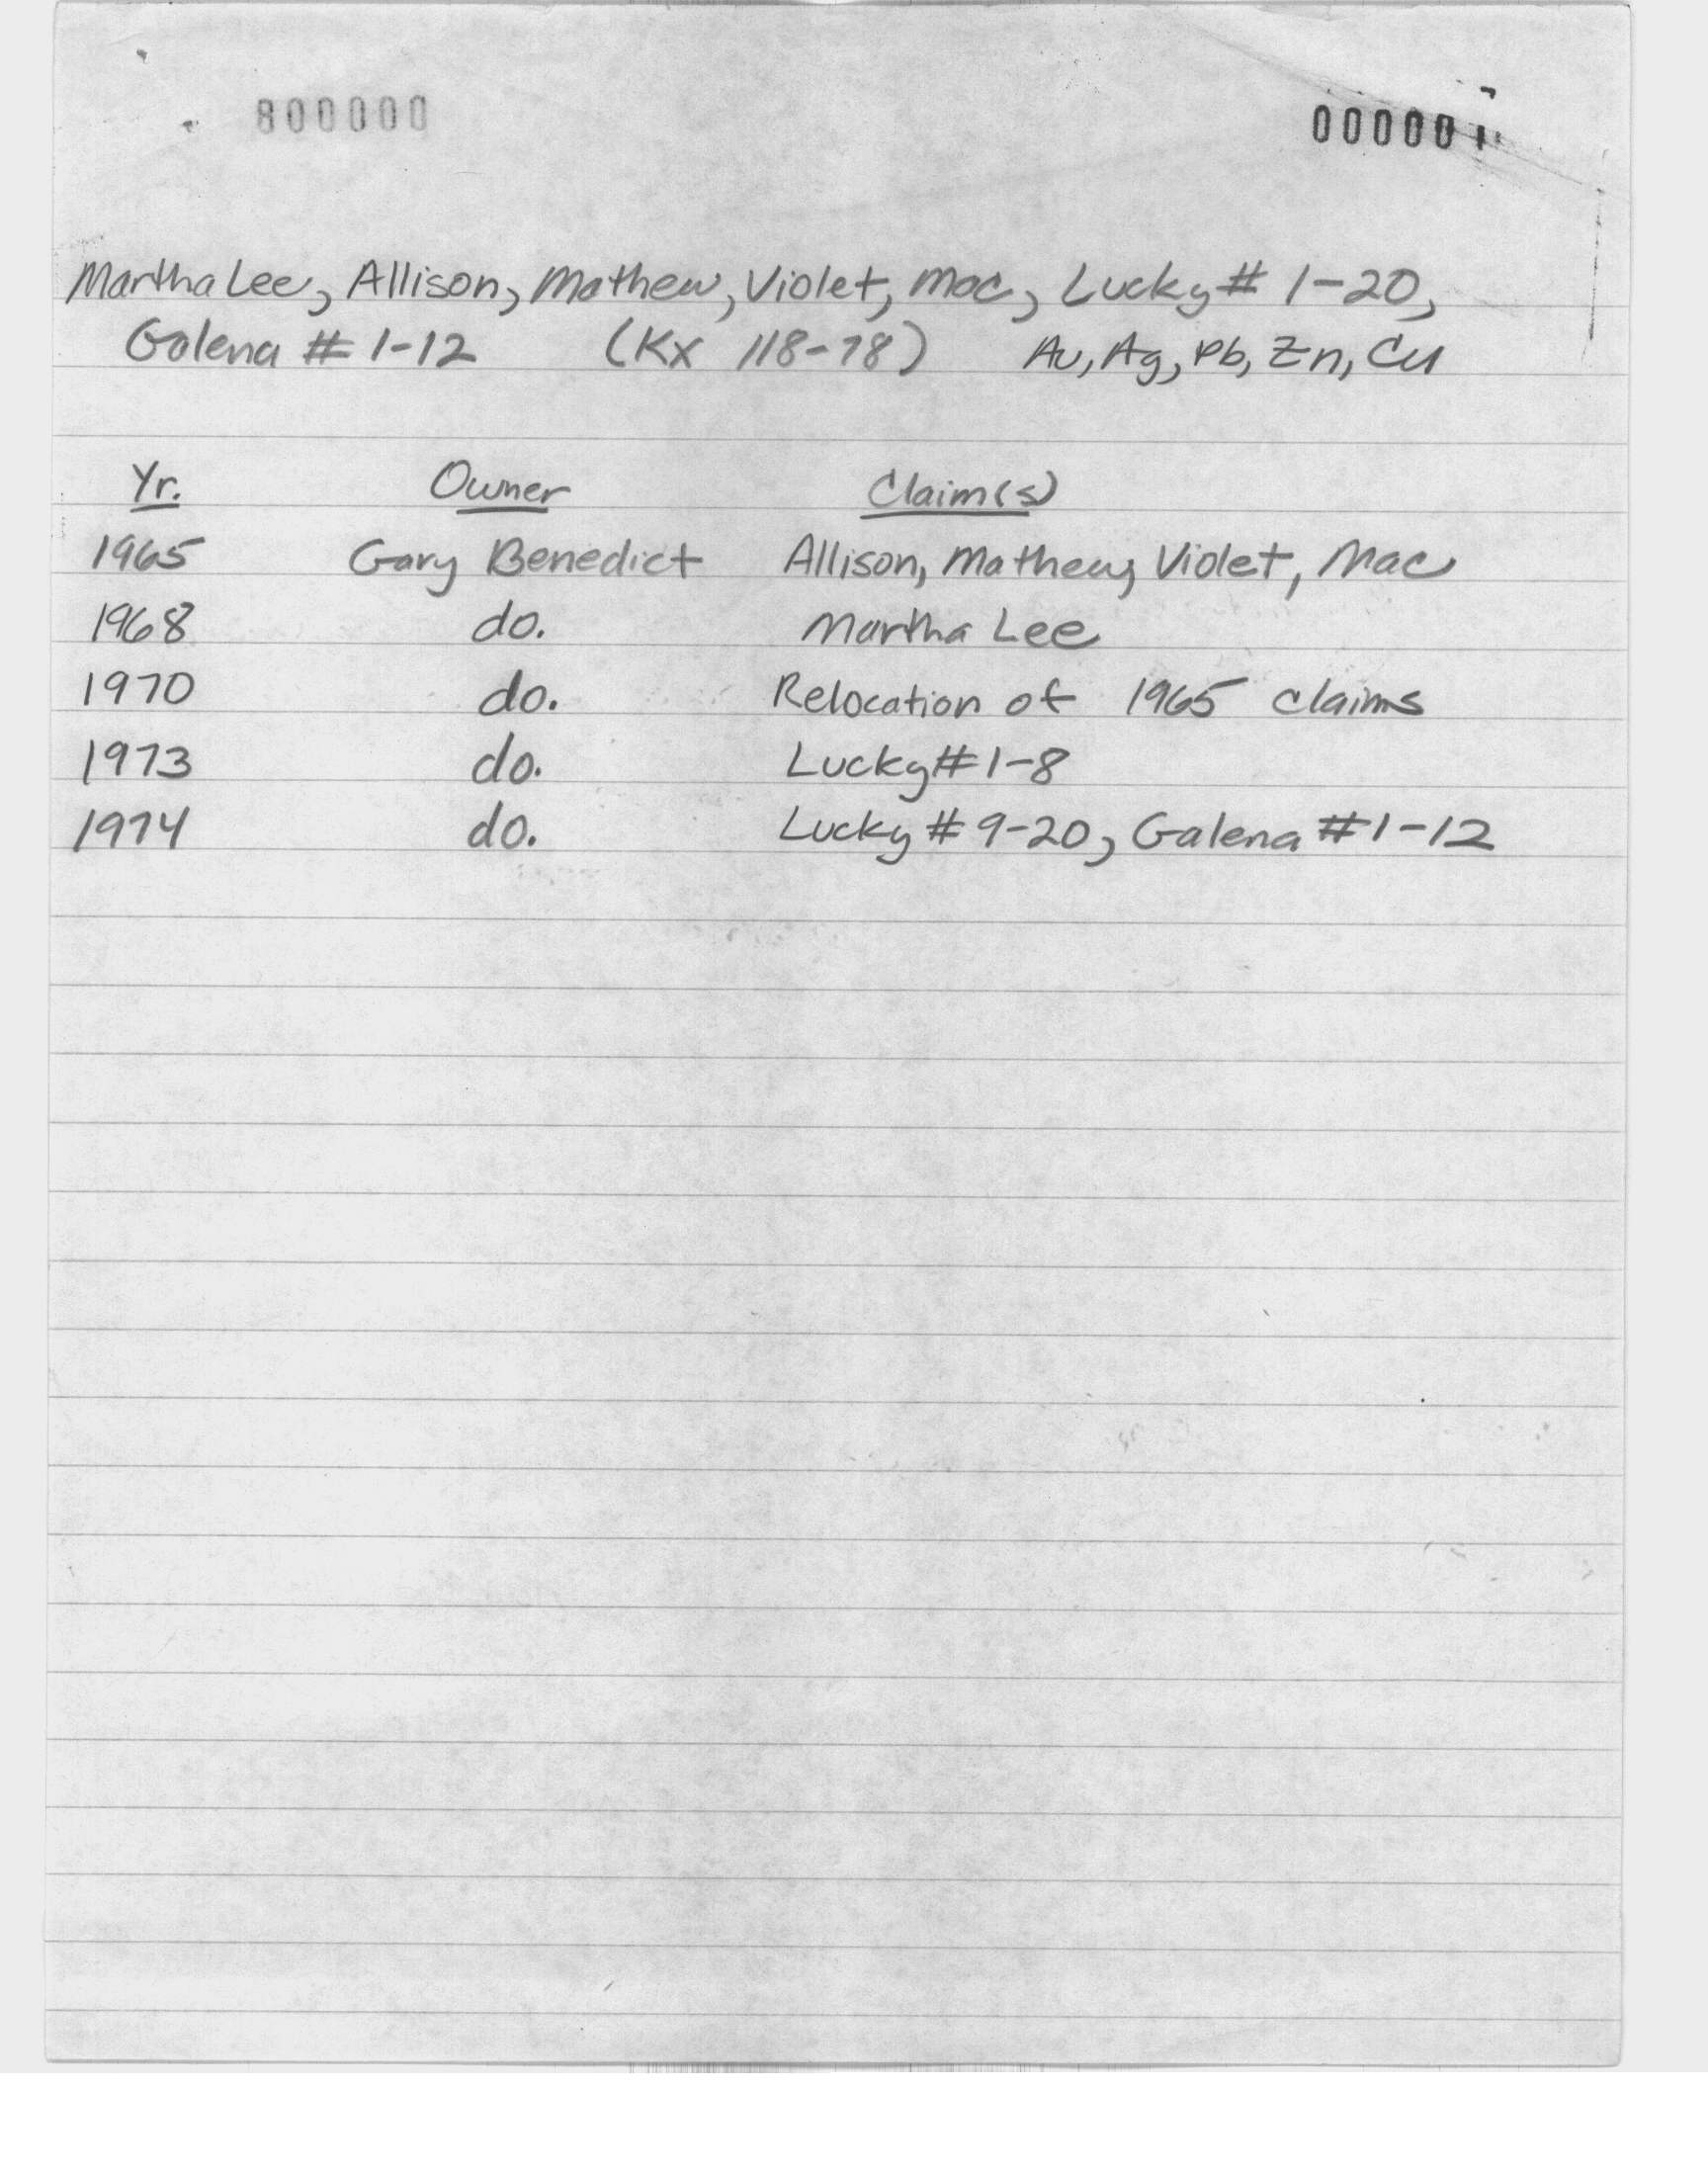 800000 000001
Martha Lee, Allison, Mathew, Violet, Mac, Lucky # 1-20,
Galena # 1-12 (Kx 118-78) Au, Ag, Pb, Zn, Cu
Yr. Owner Claim(s)
1965 Gary Benedict Allison, Mathew, Violet, Mac
1968 do. Martha Lee
1970 do. Relocation of 1965 claims
1973 do. Lucky # 1-8
1974 do. Lucky # 9-20, Galena # 1-12